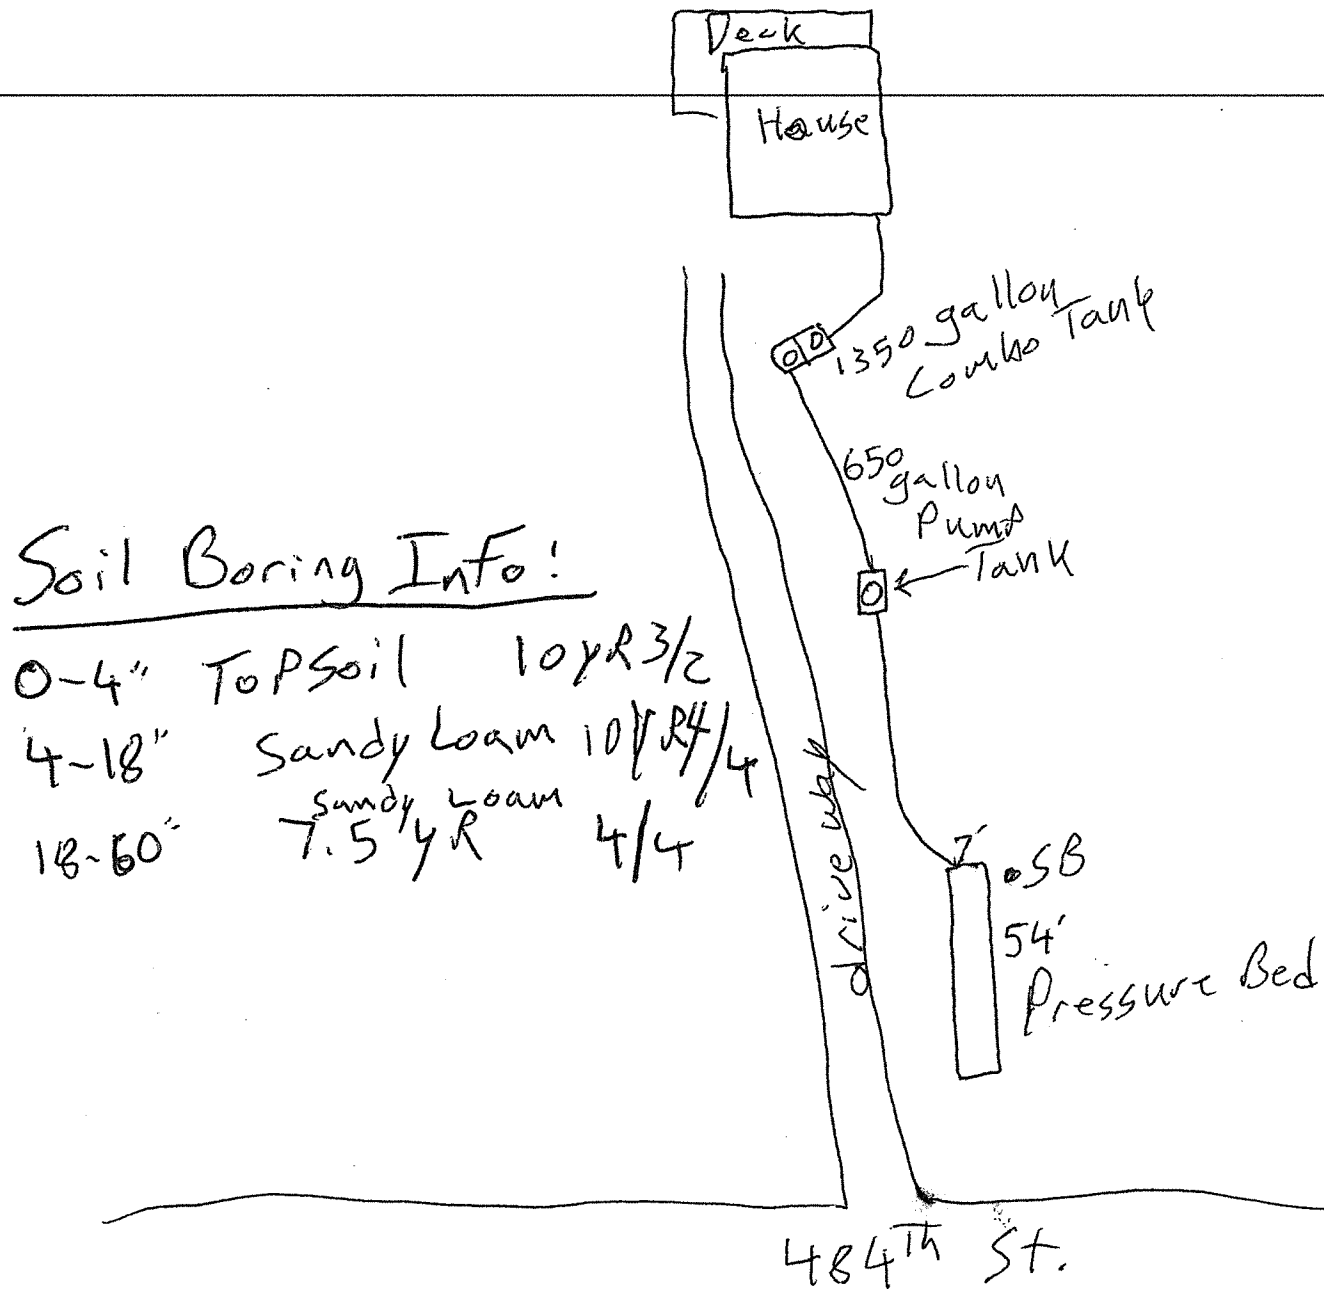 Deck
House
1350 gallon
Combo Tank
650
gallon
Pump
Tank
Soil Boring Info:
0-4" TopSoil 10yR 3/2
4-18" Sandy Loam 10YR4/4
Sandy Loam
18-60" 7.5 yR 4/4
driveway
7'
SB
54'
Pressure Bed
484Th St.